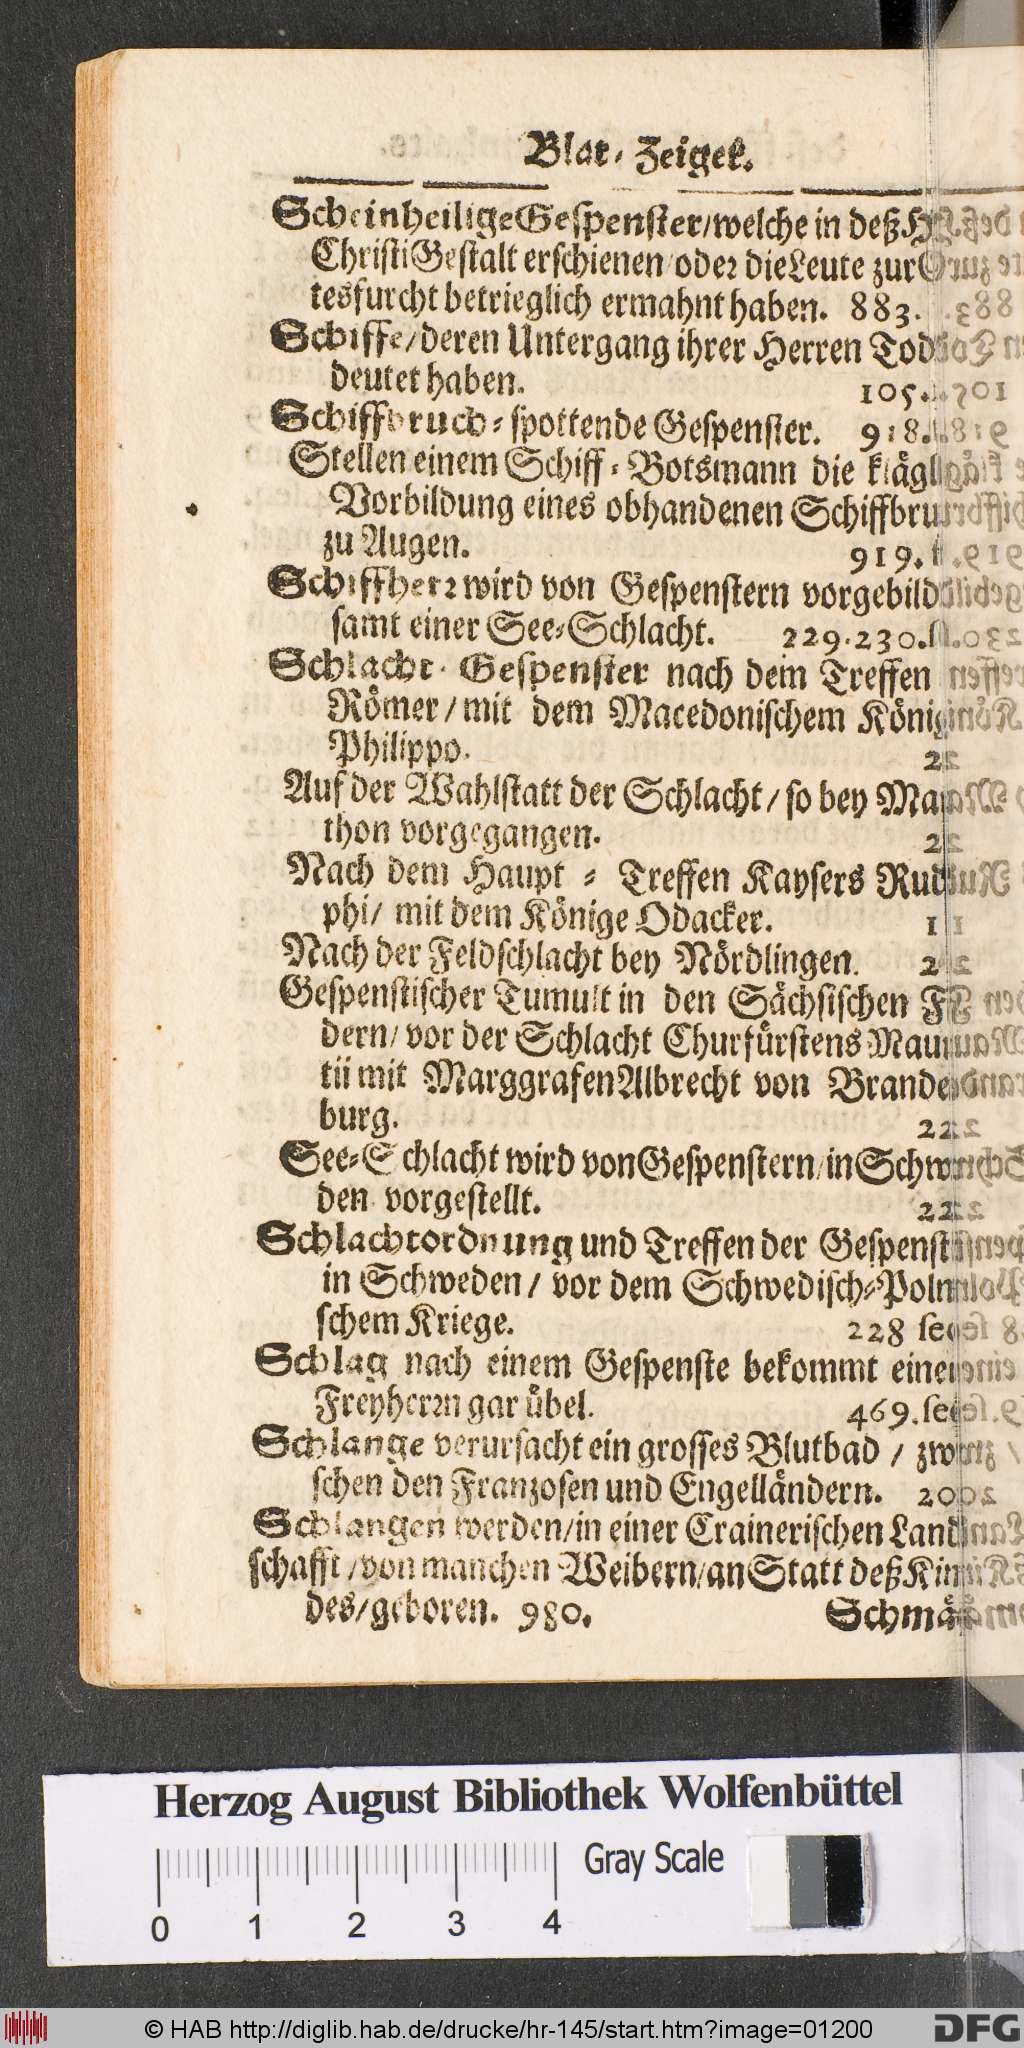 Blat-Zeiger.
Scheinheilige Gespenster/welche in deß H
Christi Gestalt erschienen/oder die Leute zur G
tesfurcht betrieglich ermahnt haben. 883.
Schiffe/deren Untergang ihrer Herren Tod
deutet haben. 105.
Schiffbruch-spottende Gespenster. 918.
Stellen einem Schiff-Botsmann die klägli
Vorbildung eines obhandenen Schiffbru
zu Augen. 919.
Schiffherr wird von Gespenstern vorgebild
samt einer See-Schlacht. 229.230.
Schlacht-Gespenster nach dem Treffen
Römer/mit dem Macedonischem König
Philippo. 22
Auf der Wahlstatt der Schlacht/so bey Ma
thon vorgegangen. 22
Nach dem Haupt-Treffen Kaysers Rud
phi/mit dem Könige Odacker. 1
Nach der Feldschlacht bey Nördlingen. 2
Gespenstischer Tumult in den Sächsischen F
dern/vor der Schlacht Churfürstens Mau
tii mit Marggrafen Albrecht von Brande
burg. 22
See-Schlacht wird von Gespenstern/in Schw
den vorgestellt. 22
Schlachtordnung und Treffen der Gespenst
in Schweden/vor dem Schwedisch-Poln
schem Kriege. 228 seq
Schlag nach einem Gespenste bekommt eine
Freyherrn gar übel. 469. se
Schlange verursacht ein grosses Blutbad/zw
schen den Franzosen und Engelländern. 200
Schlangen werden/in einer Crainerischen Land
schafft/von manchen Weibern/an Statt deß Kin
des/geboren. 980. Schmä
Herzog August Bibliothek Wolfenbüttel
Gray Scale
0 1 2 3 4
© HAB http://diglib.hab.de/drucke/hr-145/start.htm?image=01200
DFG